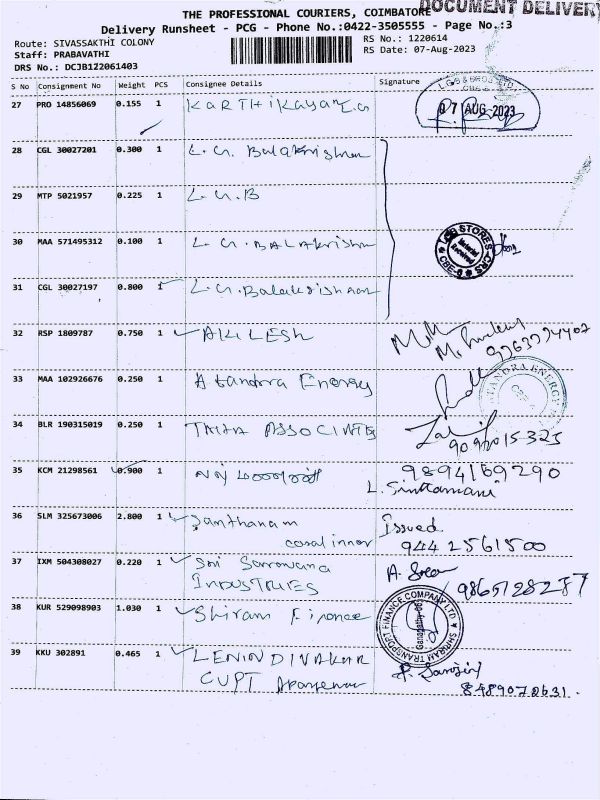 THE PROFESSIONAL COURIERS, COIMBATORE
DOCUMENT DELIVERY
Delivery Runsheet - PCG - Phone No.:0422-3505555 - Page No.:3
Route: SIVASSAKTHI COLONY
RS No.: 1220614
Staff: PRABAVATHI
RS Date: 07-Aug-2023
DRS No.: DCJB1Z2061403
S No Consignment No Weight PCS Consignee Details Signature
27 PRO 14856069 0.155 1 Karthikayan L.G
L.G.B & BROS LTD
07 AUG 2023
28 CGL 30027201 0.300 1 L.G. Balakrishnan
29 MTP 5021957 0.225 1 L.G.B
30 MAA 571495312 0.100 1 L.G. BALAKrishn
LGB STORES-CRS
Material Received
CBE-6
31 CGL 30027197 0.800 1 L.G. Balakrishnan
32 RSP 1809787 0.750 1 AKILESH
33 MAA 102926676 0.250 1 Atandra Energy
ATANDRA ENERGY
34 BLR 190315019 0.250 1 TAHA ASSOCIATES
9092015325
35 KCM 21298561 0.900 1
9894169290
L. Sintamani
36 SLM 325673006 2.800 1 Santhanam
Issued.
9442561500
37 IXM 504308027 0.220 1 Sri Saravana
INDUSTRIES
9865128287
38 KUR 529098903 1.030 1 Shiram Finance
SHRIRAM TRANSPORT FINANCE COMPANY LTD
Ganapathy
39 KKU 302891 0.465 1 LENIN DIVAKAR
P. Sarojini
8489072631.